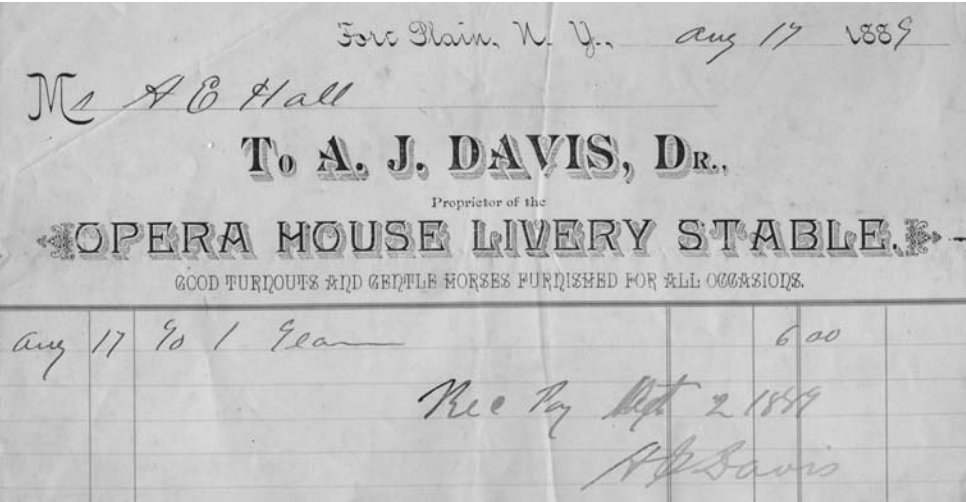 Fort Plain, N. Y., Aug 17 1889
Mr A E Hall
To A. J. DAVIS, DR.,
Proprietor of the
OPERA HOUSE LIVERY STABLE.
GOOD TURNOUTS AND GENTLE HORSES FURNISHED FOR ALL OCCASIONS.
Aug 17 To 1 Team 6 00
Rec Pay Sept 2 1889
A J Davis